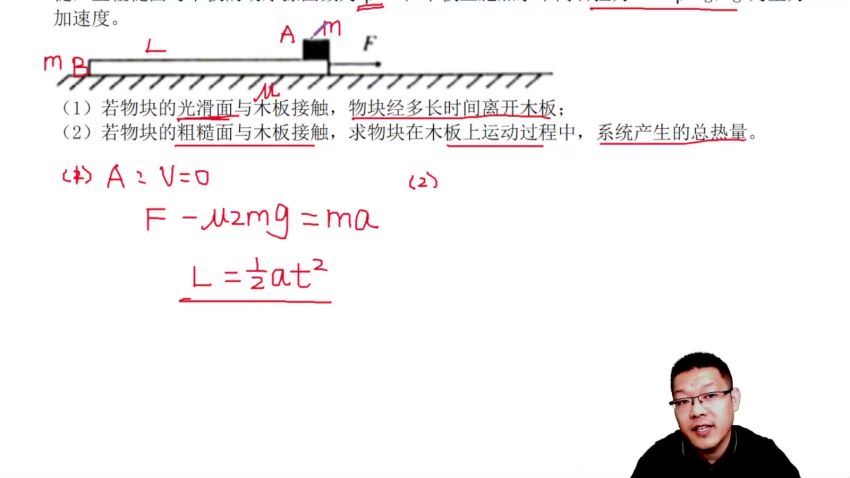 加速度。
A m F
L
m B
μ
（1）若物块的光滑面与木板接触，物块经多长时间离开木板；
（2）若物块的粗糙面与木板接触，求物块在木板上运动过程中，系统产生的总热量。
(1) A：V=0
(2)
F-μ2mg=ma
L=½at²